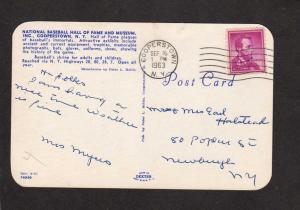 NATIONAL BASEBALL HALL OF FAME AND MUSEUM,
INC., COOPERSTOWN, N. Y. Hall of Fame plaques
of Baseball's immortals. Attractive exhibits include
ancient and current equipment, trophies, memorable
photographs, balls, gloves, uniforms, shoes,
Baseball's shrine for adults and children.
Reached via N. Y. Highways 20, 80, 28, 7. Open all
year.
COOPERSTOWN
SEP 16
PM
1963
N.Y.
Post Card
Hi folks
am having a
nice time weather
is fine
Mrs Myers
Mr & Mrs Earl
Halstead
50 Poplar St
Newburgh
NY
DEXTER